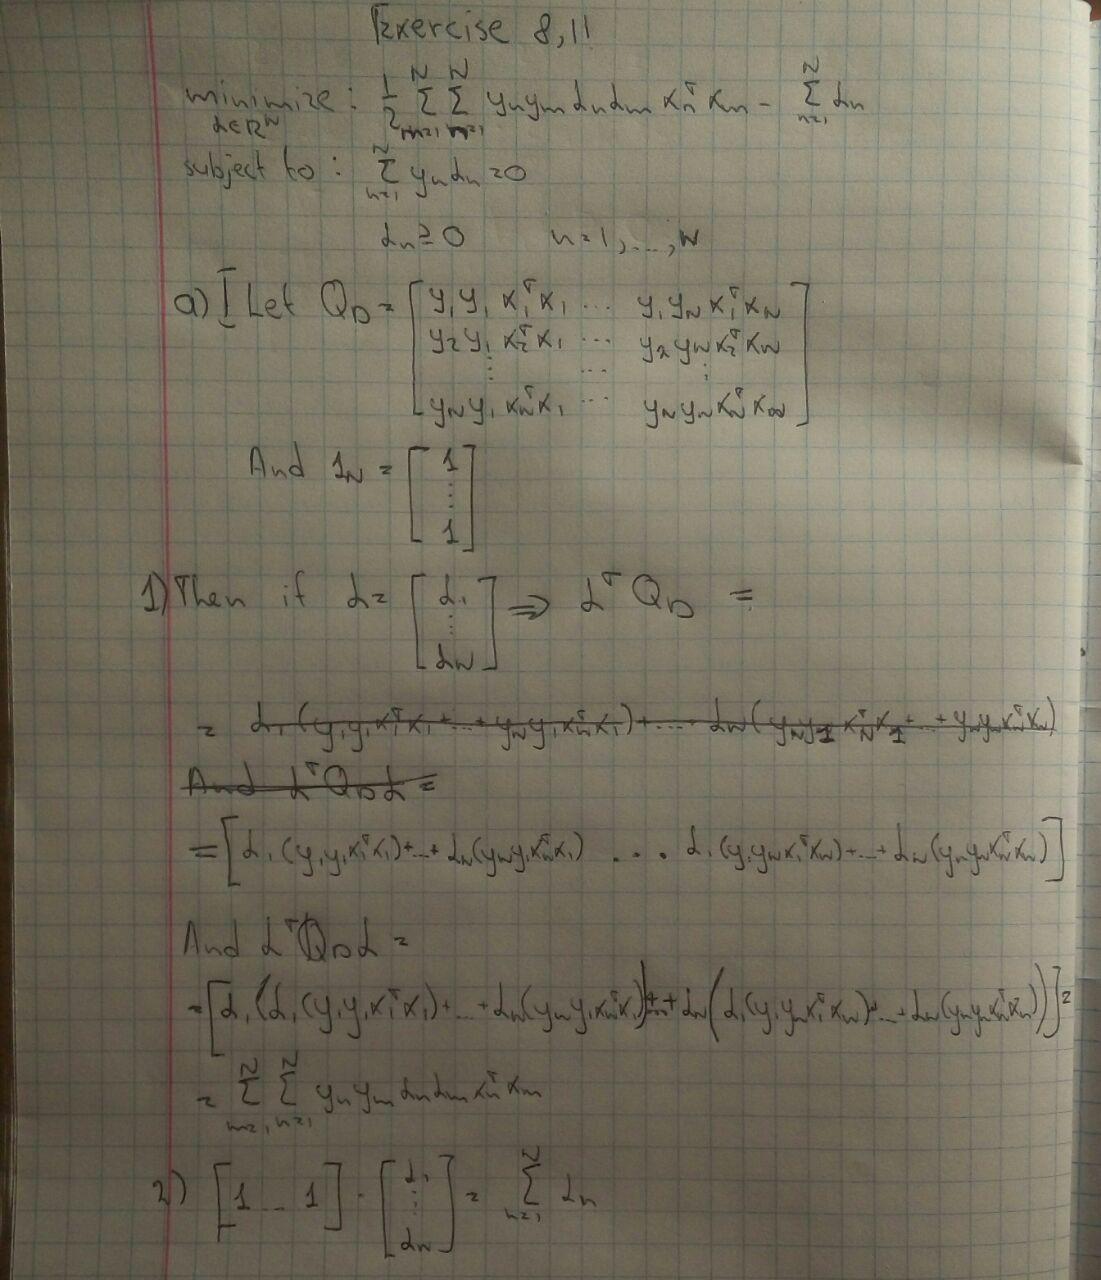 Exercise 8,11
minimize: 1/2 Σ_{m=1}^{N} Σ_{n=1}^{N} y_n y_m α_n α_m x_n^T x_m - Σ_{n=1}^{N} α_n
α∈R^N
subject to: Σ_{n=1}^{N} y_n α_n = 0
α_n ≥ 0 n=1,...,N
a) I Let Q_D = [ y_1 y_1 x_1^T x_1 ... y_1 y_N x_1^T x_N
y_2 y_1 x_2^T x_1 ... y_2 y_N x_2^T x_N
⋮ ... ⋮
y_N y_1 x_N^T x_1 ... y_N y_N x_N^T x_N ]
And 1_N = [ 1
⋮
1 ]
1) Then if α = [ α_1 ⋮ α_N ] ⇒ α^T Q_D =
= α_1 (y_1 y_1 x_1^T x_1 + ... + y_N y_1 x_N^T x_1) + ... α_N (y_N y_1 x_N^T x_1 + ... + y_N y_N x_N^T x_N)
And α^T Q_D α =
= [ α_1 (y_1 y_1 x_1^T x_1) + ... + α_N (y_N y_1 x_N^T x_1) ... α_1 (y_1 y_N x_1^T x_N) + ... + α_N (y_N y_N x_N^T x_N) ]
And α^T Q_D α =
= [ α_1 (α_1 (y_1 y_1 x_1^T x_1) + ... + α_N (y_N y_1 x_N^T x_1)) + ... + α_N (α_1 (y_1 y_N x_1^T x_N) + ... + α_N (y_N y_N x_N^T x_N)) ] =
= Σ_{m=1}^{N} Σ_{n=1}^{N} y_n y_m α_n α_m x_n^T x_m
2) [ 1 ... 1 ] · [ α_1 ⋮ α_N ] = Σ_{n=1}^{N} α_n